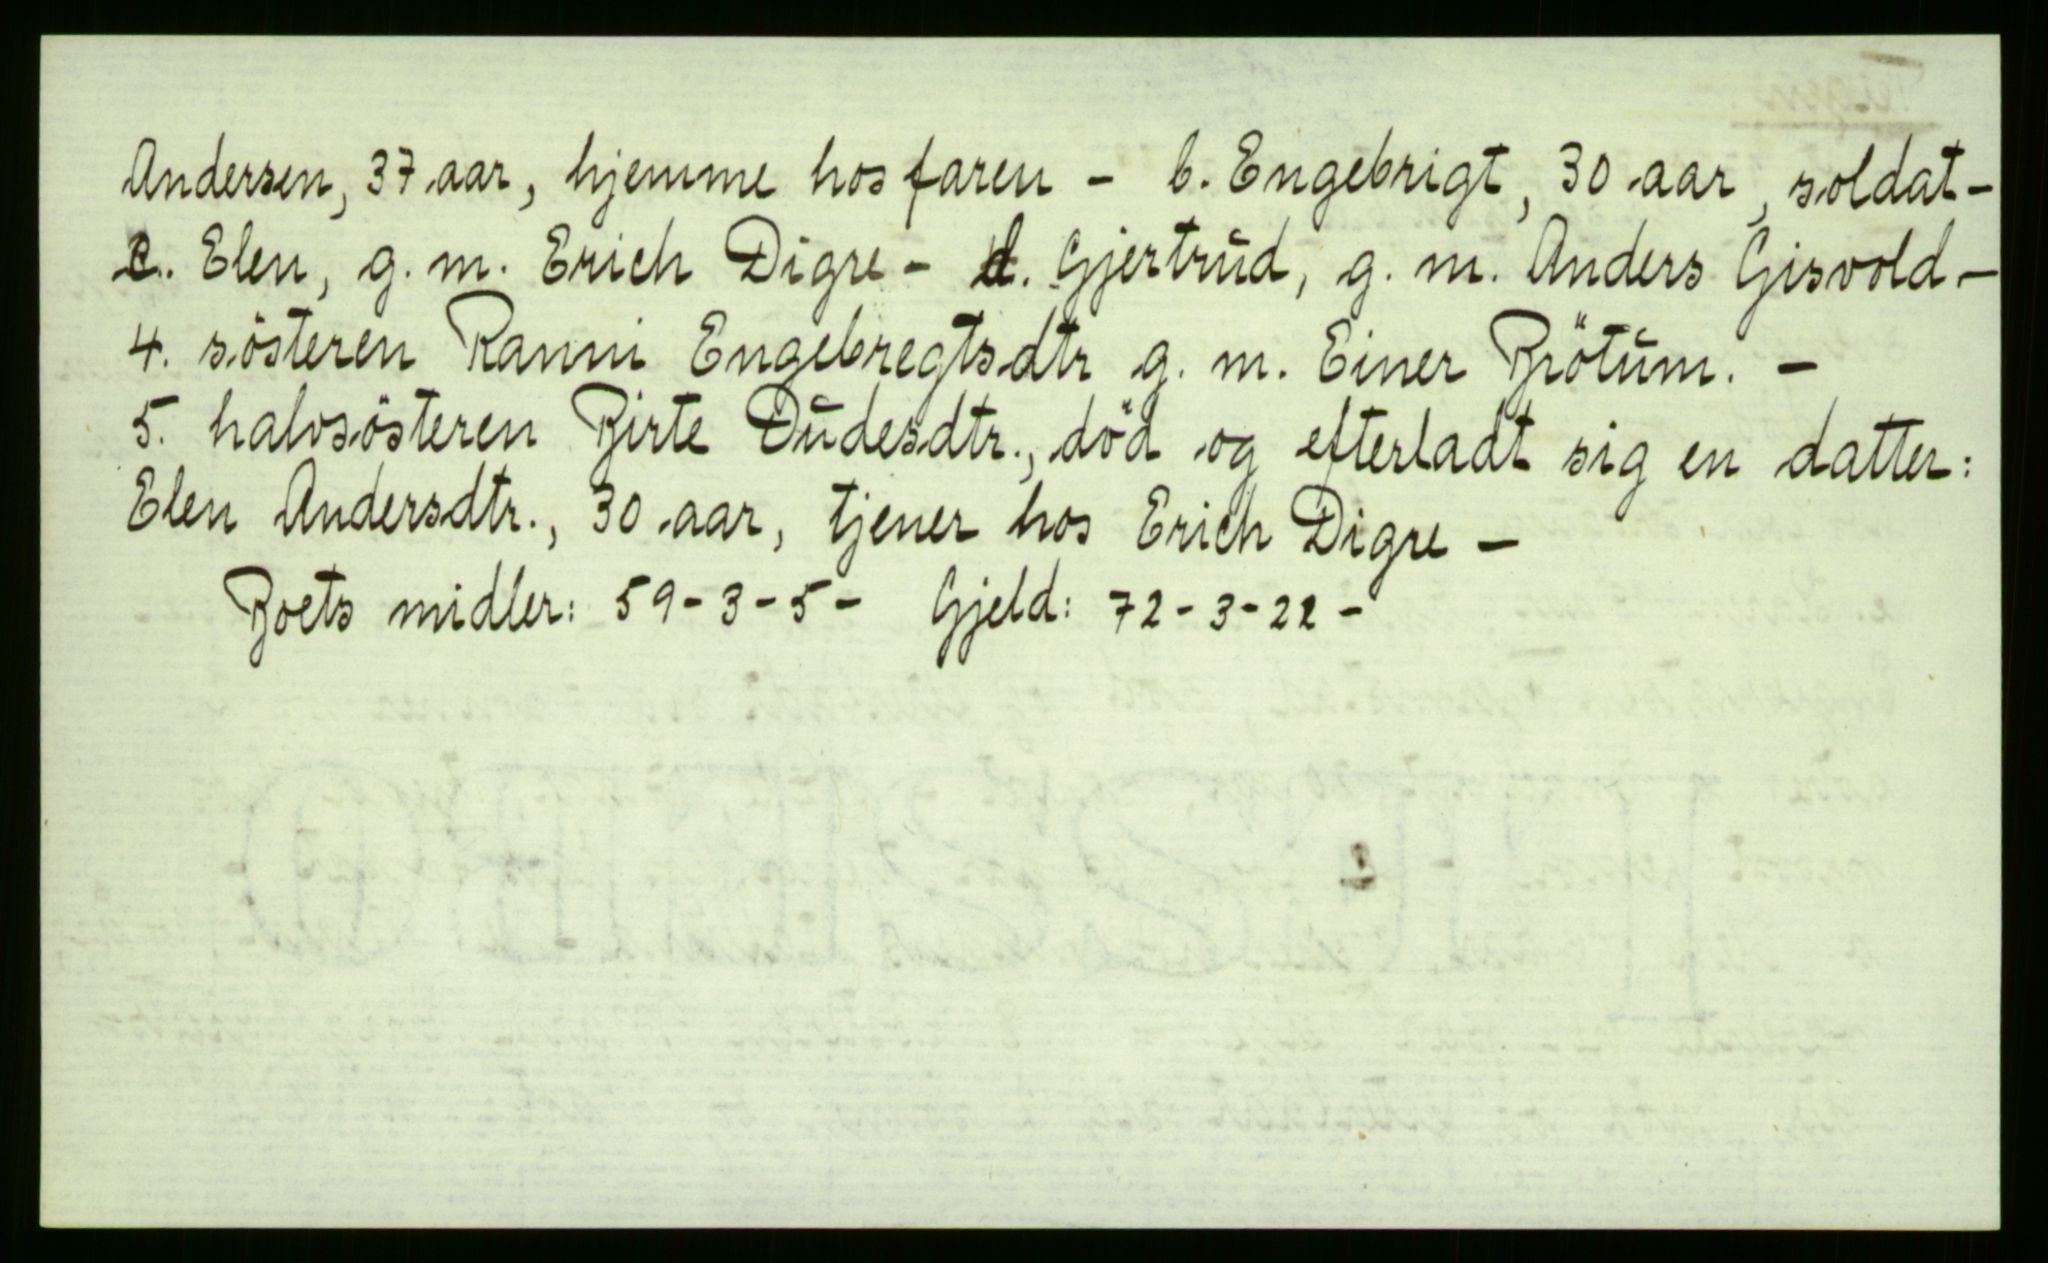 Andersen, 37 aar, hjemme hos faren - b. Engebrigt, 30 aar, soldat -
c. Elen, g. m. Erich Digre - d. Gjertrud, g. m. Anders Gisvold -
4. sösteren Ranni Engebregtsdtr g. m. Einer Brötum. -
5. halvsösteren Birte Dudesdtr., död og efterladt sig en datter:
Elen Andersdtr., 30 aar, tjener hos Erich Digre -
Boets midler: 59-3-5- Gjeld: 72-3-22-